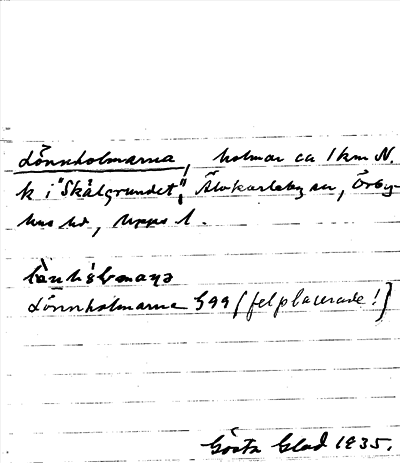 Lönnholmarna, holmar ca 1 km N.
k i "Skålgrundet", Älvkarleby sn, Örby-
hus hd, Upps l.
Lönnholmarna G 99 [felplacerade!]
Gösta Glad 1935.